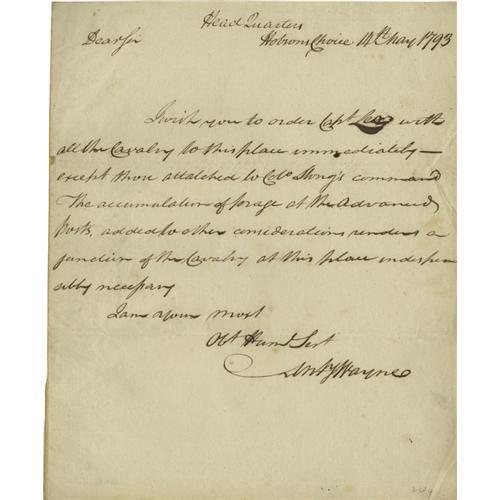 Head Quarters
Dear Sir Hobsons Choice 14th May 1793
I wish you to order Capt Lee with
all the Cavalry to this place immediately—
except those attatched to Colo Strong's command
The accumulation of forage at the Advanced
posts, added to other considerations renders a
junction of the Cavalry at this place indispen
sibly necessary
I am your most
Obt Huml Sert
Anty Wayne